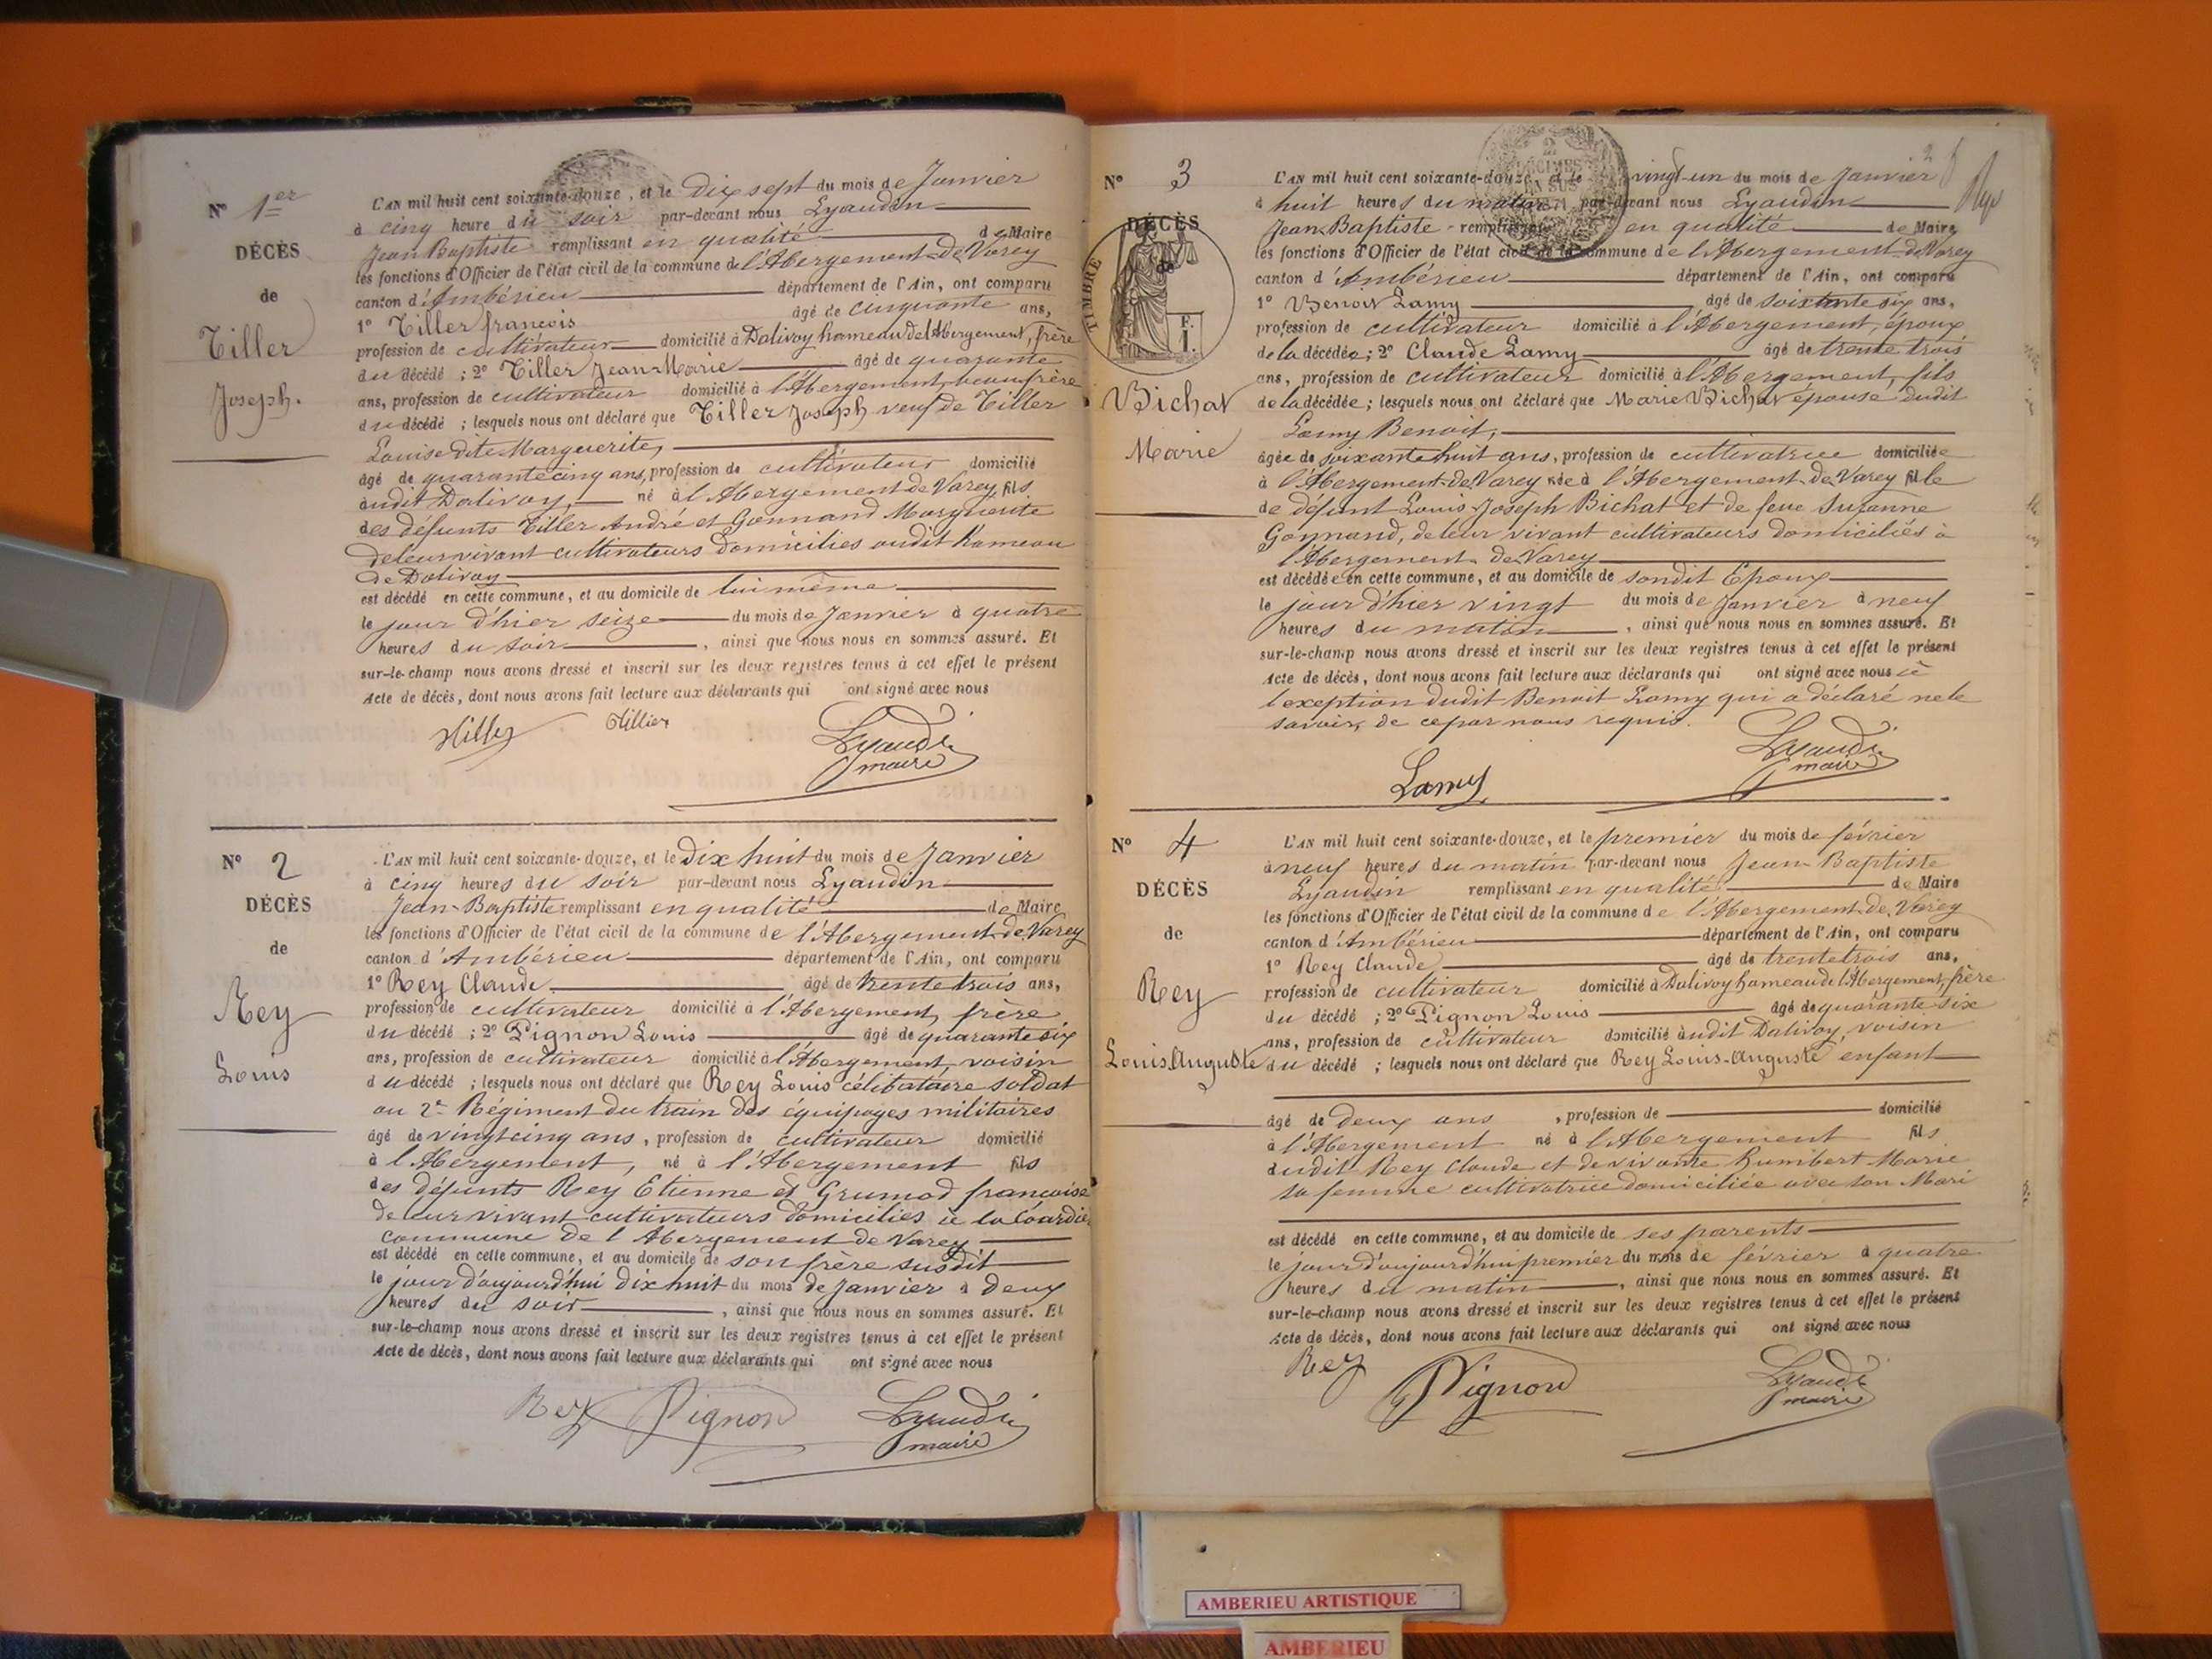 N° 1er
DÉCÈS
de
Tiller
Joseph.
L'AN mil huit cent soixante-douze, et le dix sept du mois de Janvier
à cinq heure du soir par-devant nous Lyaudin
Jean Baptiste remplissant en qualité de Maire
les fonctions d'Officier de l'état civil de la commune de l'Abergement-de Varey
canton d'Ambérieu département de l'Ain, ont comparu
1° Tiller françois âgé de cinquante ans,
profession de cultivateur domicilié à Dalivoy hameau de l'Abergement, frère
du décédé ; 2° Tiller Jean-Marie âgé de quarante
ans, profession de cultivateur domicilié à l'Abergement, beau frère
du décédé ; lesquels nous ont déclaré que Tiller Joseph veuf de Tiller
Louise dite Marguerite,
âgé de quarante cinq ans, profession de cultivateur domicilié
audit Dalivoy, né à l'Abergement de Varey, fils
des défunts Tiller André et Gonnand Marguerite
de leur vivant cultivateurs domiciliés audit hameau
de Dalivoy
est décédé en cette commune, et au domicile de lui même
le jour d'hier seize du mois de Janvier à quatre
heures du soir , ainsi que nous nous en sommes assuré. Et
sur-le-champ nous avons dressé et inscrit sur les deux registres tenus à cet effet le présent
Acte de décès, dont nous avons fait lecture aux déclarants qui ont signé avec nous
Tillier
Lyaudin
maire
N° 2
DÉCÈS
de
Rey
Louis
L'AN mil huit cent soixante-douze, et le dix huit du mois de Janvier
à cinq heures du soir par-devant nous Lyaudin
Jean-Baptiste remplissant en qualité de Maire
les fonctions d'Officier de l'état civil de la commune de l'Abergement de Varey
canton d'Ambérieu département de l'Ain, ont comparu
1° Rey Claude âgé de trente trois ans,
profession de cultivateur domicilié à l'Abergement, frère
du décédé ; 2° Pignon Louis âgé de quarante six
ans, profession de cultivateur domicilié à l'Abergement, voisin
du décédé ; lesquels nous ont déclaré que Rey Louis célibataire soldat
au 2e Régiment du train des équipages militaires
âgé de vingt cinq ans, profession de cultivateur domicilié
à l'Abergement, né à l'Abergement fils
des défunts Rey Etienne et Grumod françoise
de leur vivant cultivateurs domiciliés à
commune de l'Abergement de Varey
est décédé en cette commune, et au domicile de son frère susdit
le jour d'aujourd'hui dix huit du mois de Janvier à deux
heures du soir , ainsi que nous nous en sommes assuré. Et
sur-le-champ nous avons dressé et inscrit sur les deux registres tenus à cet effet le présent
Acte de décès, dont nous avons fait lecture aux déclarants qui ont signé avec nous
Rey Pignon Lyaudin
maire
N° 3
DÉCÈS
de
TIMBRE
F.
I.
Bichat
Marie
L'AN mil huit cent soixante-douze, et le vingt-un du mois de Janvier
à huit heures du matin par-devant nous Lyaudin
Jean-Baptiste remplissant en qualité de Maire
les fonctions d'Officier de l'état civil de la commune de l'Abergement-de Varey
canton d'Ambérieu département de l'Ain, ont comparu
1° Benoit Lamy âgé de soixante six ans,
profession de cultivateur domicilié à l'Abergement, époux
de la décédée ; 2° Claude Lamy âgé de trente trois
ans, profession de cultivateur domicilié à l'Abergement, fils
de la décédée ; lesquels nous ont déclaré que Marie Bichat épouse dudit
Lamy Benoit,
âgée de soixante huit ans, profession de cultivatrice domiciliée
à l'Abergement-de Varey née à l'Abergement-de Varey fille
de défunt Louis-Joseph Bichat et de feue Suzanne
Gonnand, de leur vivant cultivateurs domiciliés à
l'Abergement-de Varey
est décédée en cette commune, et au domicile de sondit Epoux
le jour d'hier vingt du mois de Janvier à neuf
heures du matin , ainsi que nous nous en sommes assuré. Et
sur-le-champ nous avons dressé et inscrit sur les deux registres tenus à cet effet le présent
Acte de décès, dont nous avons fait lecture aux déclarants qui ont signé avec nous à
l'exception dudit Benoit Lamy qui a déclaré ne le
savoir, de ce par nous requis.
Lamy
Lyaudin
maire
N° 4
DÉCÈS
de
Rey
Louis Auguste
L'AN mil huit cent soixante-douze, et le premier du mois de février
à neuf heures du matin par-devant nous Jean-Baptiste
Lyaudin remplissant en qualité de Maire
les fonctions d'Officier de l'état civil de la commune de l'Abergement-de Varey
canton d'Ambérieu département de l'Ain, ont comparu
1° Rey Claude âgé de trente trois ans,
profession de cultivateur domicilié à Dalivoy hameau de l'Abergement, père
du décédé ; 2° Pignon Louis âgé de quarante six
ans, profession de cultivateur domicilié audit Dalivoy, voisin
du décédé ; lesquels nous ont déclaré que Rey Louis-Auguste enfant
âgé de deux ans , profession de domicilié
à l'Abergement né à l'Abergement fils
dudit Rey Claude et de vivante Humbert Marie
sa femme cultivatrice domiciliée avec son Mari
est décédé en cette commune, et au domicile de ses parents
le jour d'aujourd'hui premier du mois de février à quatre
heures du matin , ainsi que nous nous en sommes assuré. Et
sur-le-champ nous avons dressé et inscrit sur les deux registres tenus à cet effet le présent
Acte de décès, dont nous avons fait lecture aux déclarants qui ont signé avec nous
Rey Pignon Lyaudin
maire
AMBERIEU ARTISTIQUE
AMBERIEU